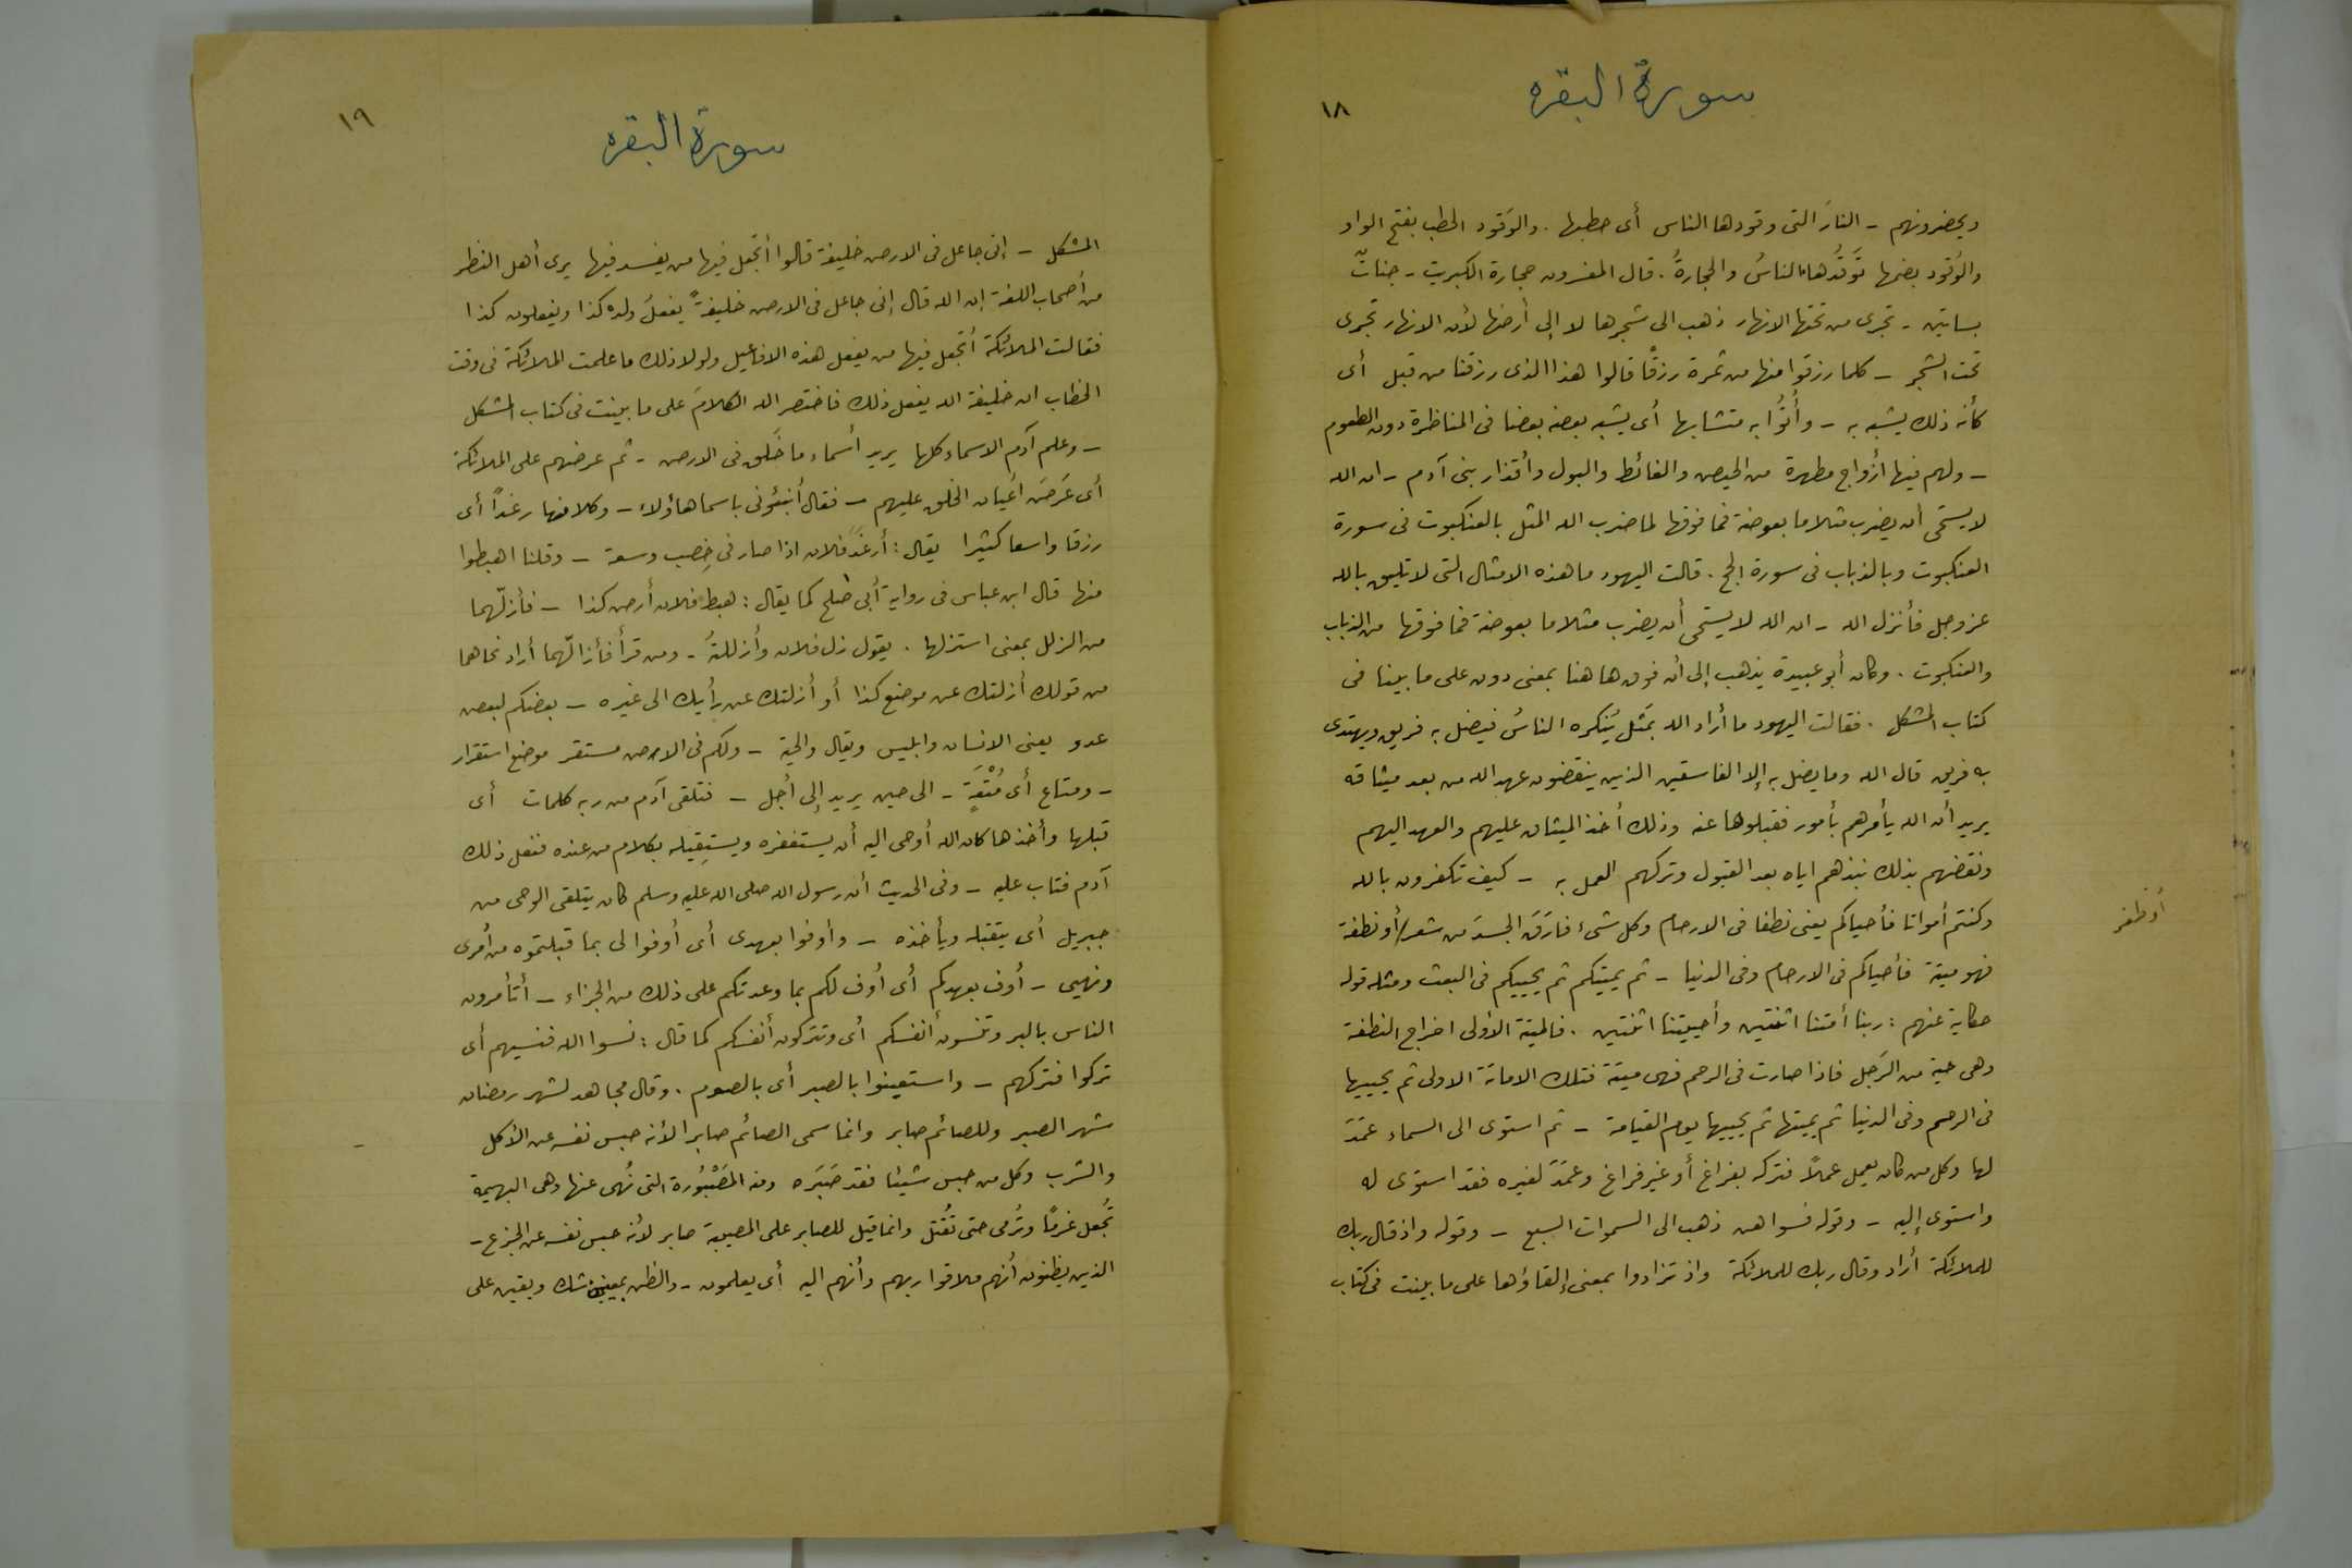 سورة البقره
١٨
ويحضرونهم - النارَ التى وقودها الناس أى حطبها . والوَقود الحطب بفتح الواو
والوُقود بضمها تَوَقُّدها. الناسُ والحجارةُ . قال المفسرون حجارة الكبريت - جناتٌ
بساتين - تجرى من تحتها الانهار ذهب الى شجرها لا إلى أرضها لأن الانهار تجرى
تحت الشجر - كلما رزقوا منها من ثمرة رزقًا قالوا هذا الذى رزقنا من قبل أى
كأنه ذلك يشبه به - وأُتُوا به متشابها أى يشبه بعضه بعضا فى المناظرة دون الطعوم
- ولهم فيها أزواج مطهرة من الحيض والغائط والبول وأقذار بنى آدم - ان الله
لا يستحى أن يضرب مثلا ما بعوضة فما فوقها لما ضرب الله المثل بالعنكبوت فى سورة
العنكبوت وبالذباب فى سورة الحج . قالت اليهود ما هذه الامثال التى لا تليق بالله
عز وجل فأنزل الله - ان الله لا يستحى أن يضرب مثلا ما بعوضة فما فوقها من الذباب
والعنكبوت . وكان أبو عبيدة يذهب إلى أن فوق ها هنا بمعنى دون على ما بينا فى
كتاب المشكل . فقالت اليهود ما أراد الله بمَثَل يُنكره الناسُ فيضل به فريق ويهتدى
به فريق قال الله وما يضل به إلا الفاسقين الذين ينقضون عهد الله من بعد ميثاقه
يريد أن الله يأمرهم بأمور فقبلوها عنه وذلك أخذ الميثاق عليهم والعهد اليهم
ونقضهم بذلك نبذهم اياه بعد القبول وتركهم العمل به - كيف تكفرون بالله
وكنتم أمواتا فأحياكم يعنى نطفا فى الارحام وكل شىء فارَقَ الجسدَ من شعر/أو نطفة
أو ظفر
فهو ميتة فأحياكم فى الارحام وفى الدنيا - ثم يميتكم ثم يحييكم فى البعث ومثله قوله
حكاية عنهم : ربنا أمتنا اثنتين وأحييتنا اثنتين . فالميتة الأولى اخراج النطفة
وهى حية من الرَجل فاذا صارت فى الرحم فهى ميتة فتلك الاماتة الاولى ثم يحييها
فى الرحم وفى الدنيا ثم يميتها ثم يحييها يوم القيامة - ثم استوى الى السماء عَمَدَ
لها وكل من كان يعمل عملًا فتركه بفراغ أو غير فراغ وعَمَدَ لغيره فقد استوى له
واستوى إليه - وقوله فسواهن ذهب الى السموات السبع - وقوله واذ قال ربك
للملائكة أراد وقال ربك للملائكة واذ تزادوا بمعنى إلقاؤها على ما بينت فى كتاب
سورة البقره
١٩
المشكل - إنى جاعل فى الارض خليفة قالوا أتجعل فيها من يفسد فيها يرى أهل النظر
من أصحاب اللغة ان الله قال إنى جاعل فى الارض خليفةً يفعلُ ولده كذا ويفعلون كذا
فقالت الملائكة أتجعل فيها من يفعل هذه الافاعيل ولولا ذلك ما علمت الملائكة فى وقت
الخطاب ان خليفة الله يفعل ذلك فاختصر الله الكلامَ على ما بينت فى كتاب المشكل
- وعلم آدم الاسماء كلها يريد أسماء ما خَلق فى الارض - ثم عرضهم على الملائكة
أى عَرَضَ أَعيان الخلق عليهم - فقال أنبئونى باسما هاؤلاء - وكلا منها رغدًا أى
رزقا واسعا كثيرا يقال : أرغَدَ فلان اذا صار فى خِصب وسعة - وقلنا اهبطوا
منها قال ابن عباس فى رواية أبى صلح كما يقال : هبط فلان أرض كذا - فأزلّهما
من الزلل بمعنى استزلها . يقول زل فلان وأزللتُه - ومن قرأ فأزالّهما أراد نحاهما
من قولك أزلتك عن موضع كذا أو أزلتك عن رأيك الى غيره - بعضكم لبعض
عدو يعنى الانسان وابليس ويقال والحية - ولكم فى الارض مستقر موضع استقرار
- ومتاع أى مُتْعَةٍ - الى حين يريد إلى أجل - فتلقى آدم من ربه كلمات أى
قبلها وأخذها كان الله أوحى اليه أن يستغفره ويستقِيله بكلام من عنده ففعل ذلك
آدم فتاب عليه - وفى الحديث أن رسول الله صلى الله عليه وسلم كان يتلقى الوحى من
جبريل أى يتقبله ويأخذه - وأوفوا بعهدى أى أوفوا لى بما قبلتموه من أمرى
ونهيى - أوف بعهدكم أى أُوف لكم بما وعدتكم على ذلك من الجزاء - أتأمرون
الناس بالبر وتنسون أنفسكم أى وتتركون أنفسكم كما قال : نسوا الله فنسيهم أى
تركوا فتركهم - واستعينوا بالصبر أى بالصوم . وقال مجاهد لشهر رمضان
شهر الصبر وللصائم صابر وانما سمى الصائم صابرا لأنه حبس نفسه عن الأكل
والشرب وكل من حبس شيئا فقد صَبَره ومنه المَصْبُورة التى نُهى عنها وهى البهيمة
تُجعل غرضًا وتُرمى حتى تُقتل وانما قيل للصابر على المصيبة صابر لأنه حبس نفسه عن الجزع -
الذين يظنون أنهم ملاقوا ربهم وأنهم اليه أى يعلمون - والظن بمعنيين شك ويقين على